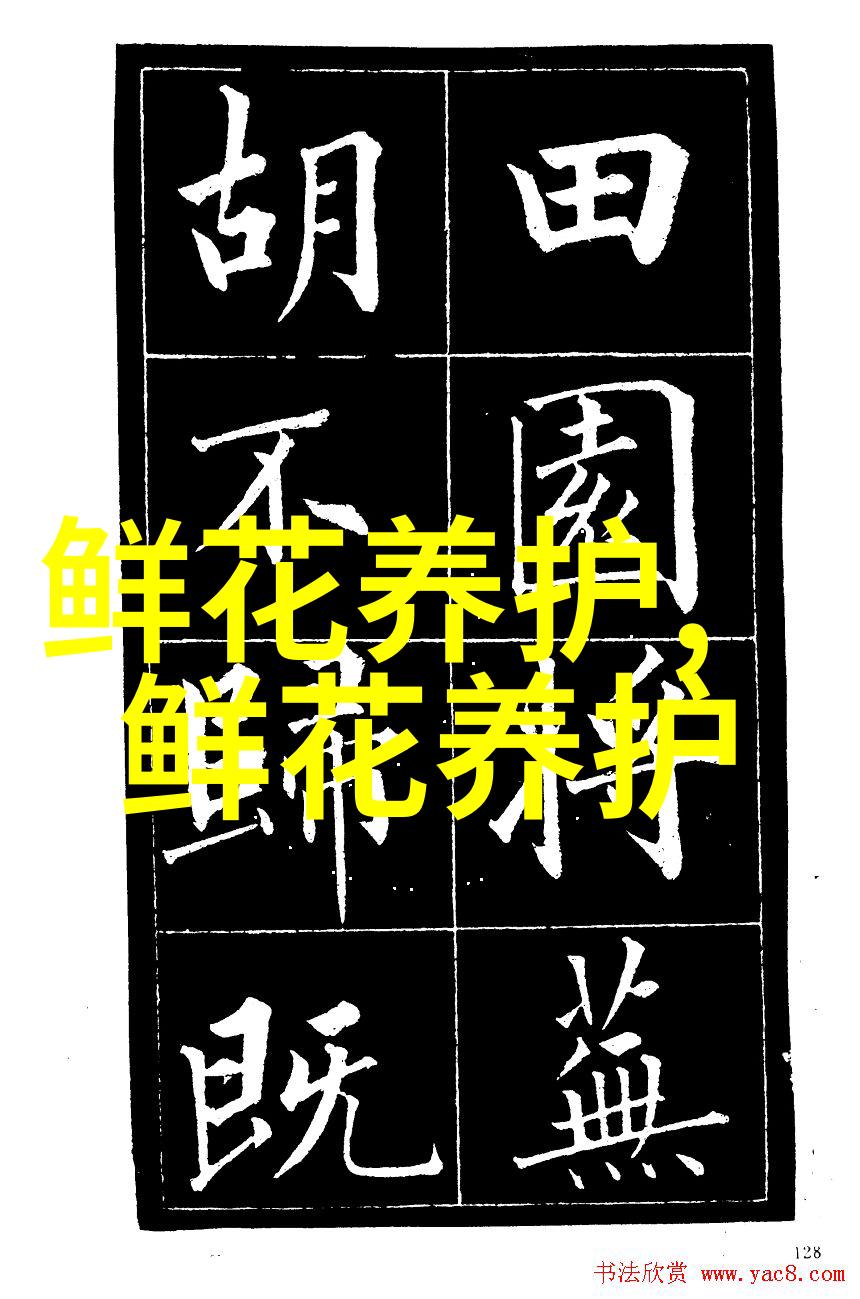 田園將蕪
胡不歸既
鲜花养护,
鲜花养护
128
书法欣赏 www.yac8.com